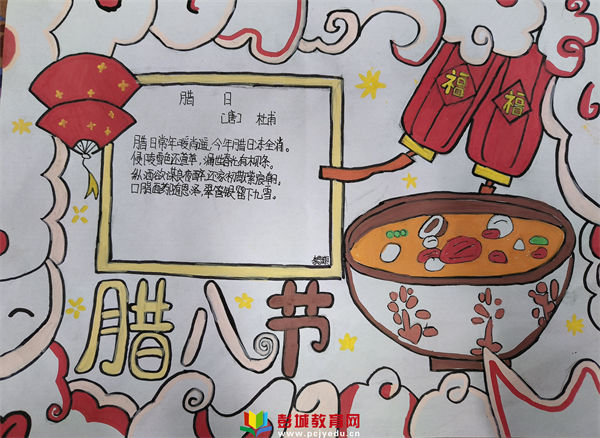 腊 日
[唐] 杜甫
腊日常年暖尚遥,今年腊日冻全消。
侵陵雪色还萱草,漏泄春光有柳条。
纵酒欲谋良夜醉,还家初散紫宸朝。
口脂面药随恩泽,翠管银罂下九霄。
福
福
腊八节
彭城教育网
www.pcjyedu.cn